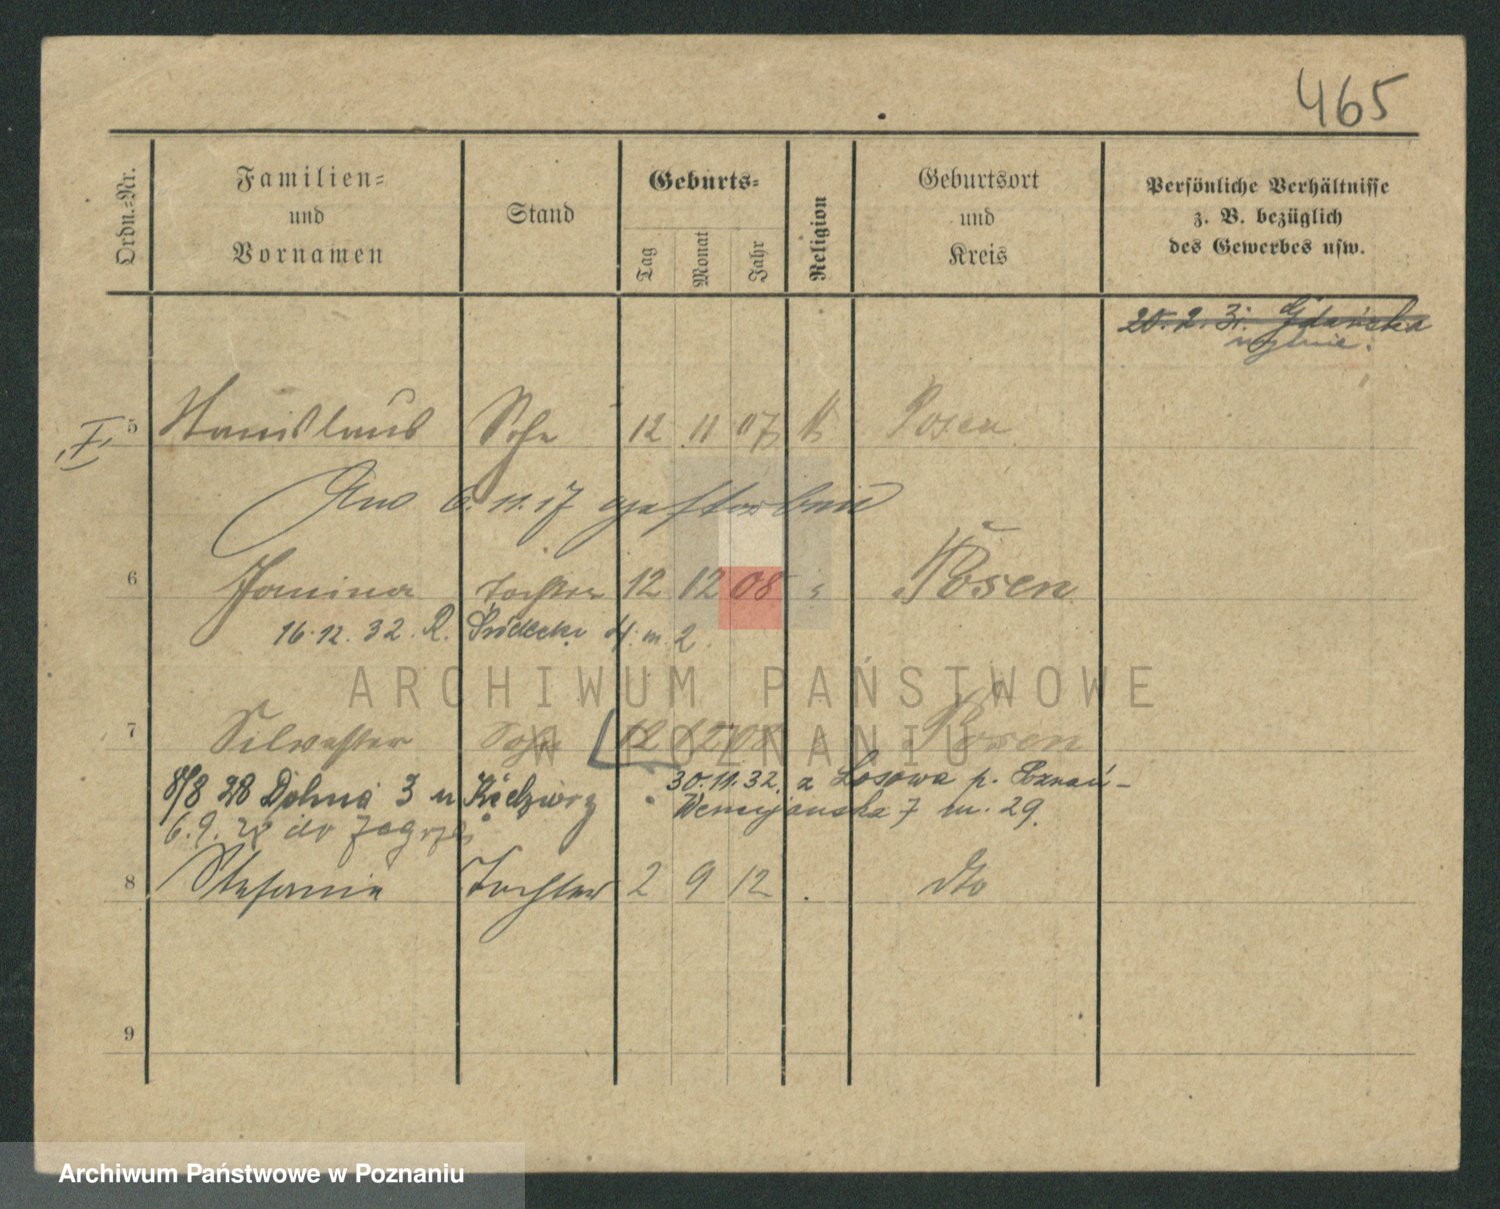 465
Ordn.-Nr.
Familien-
und
Vornamen
Stand
Geburts-
Tag
Monat
Jahr
Religion
Geburtsort
und
Kreis
Persönliche Verhältnisse
z. B. bezüglich
des Gewerbes usw.
20.2.31. Gdańska
5 Stanislaus Sohn 12 11 07 Posen
6.11.17 gestorben
6 Janina Tochter 12 12 08 Posen
16.12.32. R. 4. m. 2.
ARCHIWUM PAŃSTWOWE
W POZNANIU
7 Silvester Sohn 12 12 08 Posen
8/8 28 Dolna 3 u
30.11.32. z Losowa p. Poznań-
6.9. do
7 m. 29.
8 Stefanie Tochter 2 9 12 dto
9
Archiwum Państwowe w Poznaniu